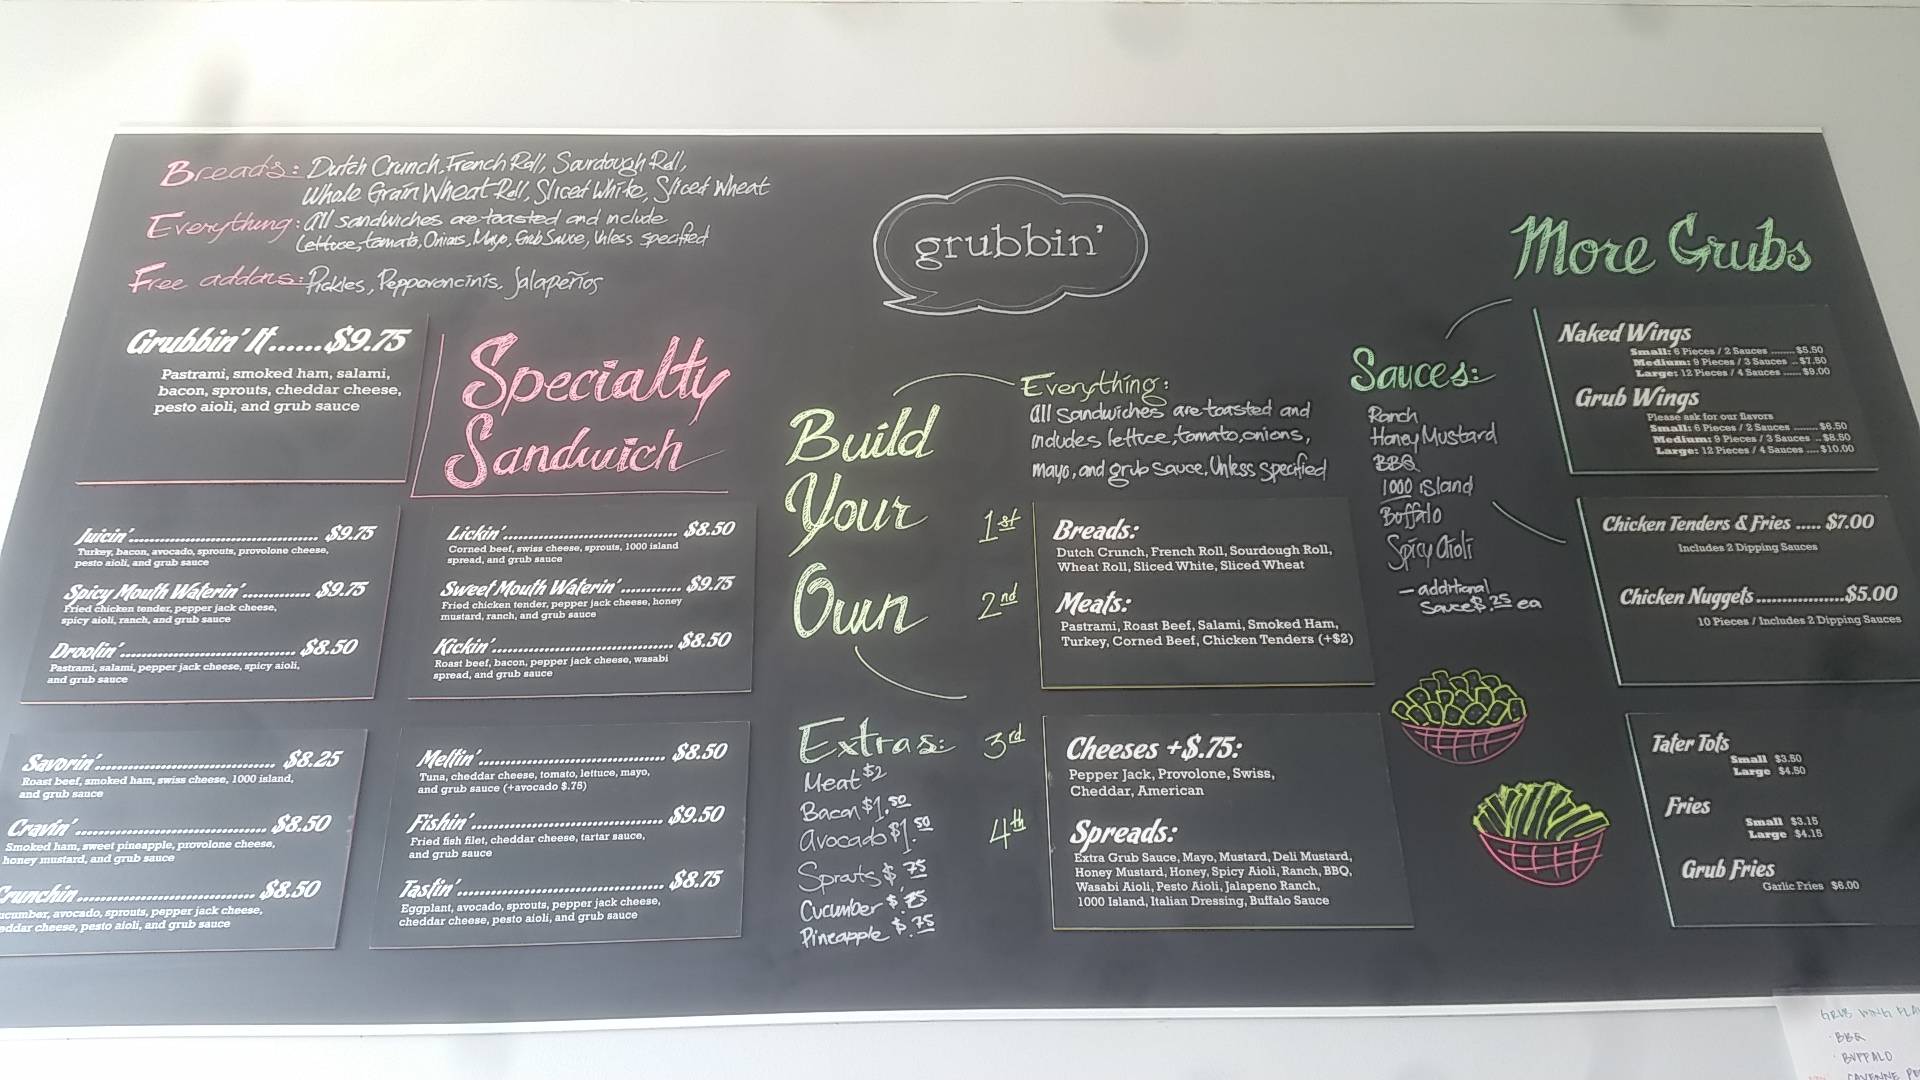 Breads: Dutch Crunch, French Roll, Sourdough Roll,
Whole Grain Wheat Roll, Sliced White, Sliced Wheat
Everything: All sandwiches are toasted and include
Lettuce, tomato, Onions, Mayo, Grub Sauce, Unless specified
Free addons: Pickles, Pepperoncinis, Jalapeños
Grubbin' It......$9.75
Pastrami, smoked ham, salami,
bacon, sprouts, cheddar cheese,
pesto aioli, and grub sauce
Specialty
Sandwich
Juicin'.......................................$9.75
Turkey, bacon, avocado, sprouts, provolone cheese,
pesto aioli, and grub sauce
Spicy Mouth Waterin'....................$9.75
Fried chicken tender, pepper jack cheese,
spicy aioli, ranch, and grub sauce
Droolin'.....................................$8.50
Pastrami, salami, pepper jack cheese, spicy aioli,
and grub sauce
Lickin'.....................................$8.50
Corned beef, swiss cheese, sprouts, 1000 island
spread, and grub sauce
Sweet Mouth Waterin'.............$9.75
Fried chicken tender, pepper jack cheese, honey
mustard, ranch, and grub sauce
Kickin'.......................................$8.50
Roast beef, bacon, pepper jack cheese, wasabi
spread, and grub sauce
Savorin'....................................$8.25
Roast beef, smoked ham, swiss cheese, 1000 island,
and grub sauce
Cravin'.......................................$8.50
Smoked ham, sweet pineapple, provolone cheese,
honey mustard, and grub sauce
Crunchin.....................................$8.50
cucumber, avocado, sprouts, pepper jack cheese,
cheddar cheese, pesto aioli, and grub sauce
Meltin'.......................................$8.50
Tuna, cheddar cheese, tomato, lettuce, mayo,
and grub sauce (+avocado $.75)
Fishin'.......................................$9.50
Fried fish filet, cheddar cheese, tartar sauce,
and grub sauce
Tastin'.......................................$8.75
Eggplant, avocado, sprouts, pepper jack cheese,
cheddar cheese, pesto aioli, and grub sauce
grubbin'
Build
Your
Own
Everything:
All Sandwiches are toasted and
includes lettuce, tomato, onions,
mayo, and grub sauce, Unless specified
1st
Breads:
Dutch Crunch, French Roll, Sourdough Roll,
Wheat Roll, Sliced White, Sliced Wheat
2nd
Meats:
Pastrami, Roast Beef, Salami, Smoked Ham,
Turkey, Corned Beef, Chicken Tenders (+$2)
3rd
Cheeses +$.75:
Pepper Jack, Provolone, Swiss,
Cheddar, American
4th
Spreads:
Extra Grub Sauce, Mayo, Mustard, Deli Mustard,
Honey Mustard, Honey, Spicy Aioli, Ranch, BBQ,
Wasabi Aioli, Pesto Aioli, Jalapeno Ranch,
1000 Island, Italian Dressing, Buffalo Sauce
Extras:
Meat $2
Bacon $1.50
Avocado $1.50
Sprouts $.75
Cucumber $.75
Pineapple $.75
More Grubs
Sauces:
Ranch
Honey Mustard
BBQ
1000 island
Buffalo
Spicy Aioli
- additional
Sauce $.25 ea
Naked Wings
Small: 6 Pieces / 2 Sauces ........ $5.50
Medium: 9 Pieces / 3 Sauces .. $7.50
Large: 12 Pieces / 4 Sauces ..... $9.00
Grub Wings
Please ask for our flavors
Small: 6 Pieces / 2 Sauces ........ $6.50
Medium: 9 Pieces / 3 Sauces .. $8.50
Large: 12 Pieces / 4 Sauces .... $10.00
Chicken Tenders & Fries ..... $7.00
Includes 2 Dipping Sauces
Chicken Nuggets..................$5.00
10 Pieces / Includes 2 Dipping Sauces
Tater Tots
Small $3.50
Large $4.50
Fries
Small $3.15
Large $4.15
Grub Fries
Garlic Fries $6.00
GRUB WING FLA
· BBQ
· BUFFALO
CAYENNE PE